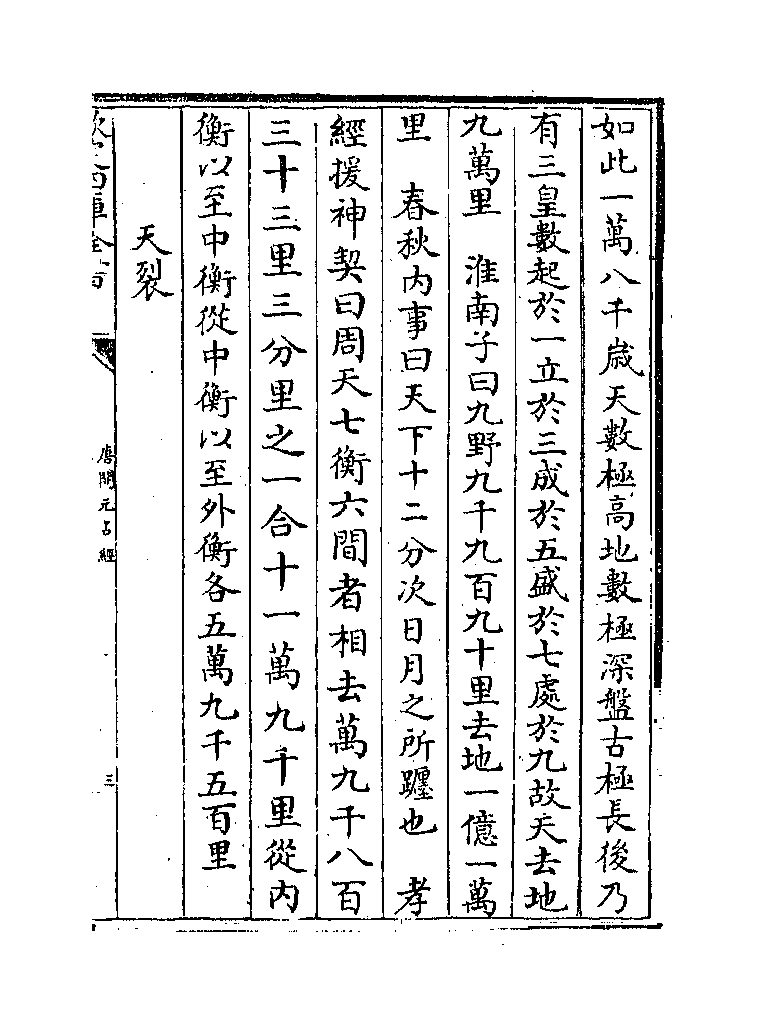 如此一萬八千歲天數極高地數極深盤古極長後乃
有三皇數起於一立於三成於五盛於七處於九故天去地
九萬里　淮南子曰九野九千九百九十里去地一億一萬
里　春秋内事曰天下十二分次日月之所躔也　孝
經援神契曰周天七衡六間者相去萬九千八百
三十三里三分里之一合十一萬九千里從内
衡以至中衡從中衡以至外衡各五萬九千五百里
天裂
唐開元占經
三